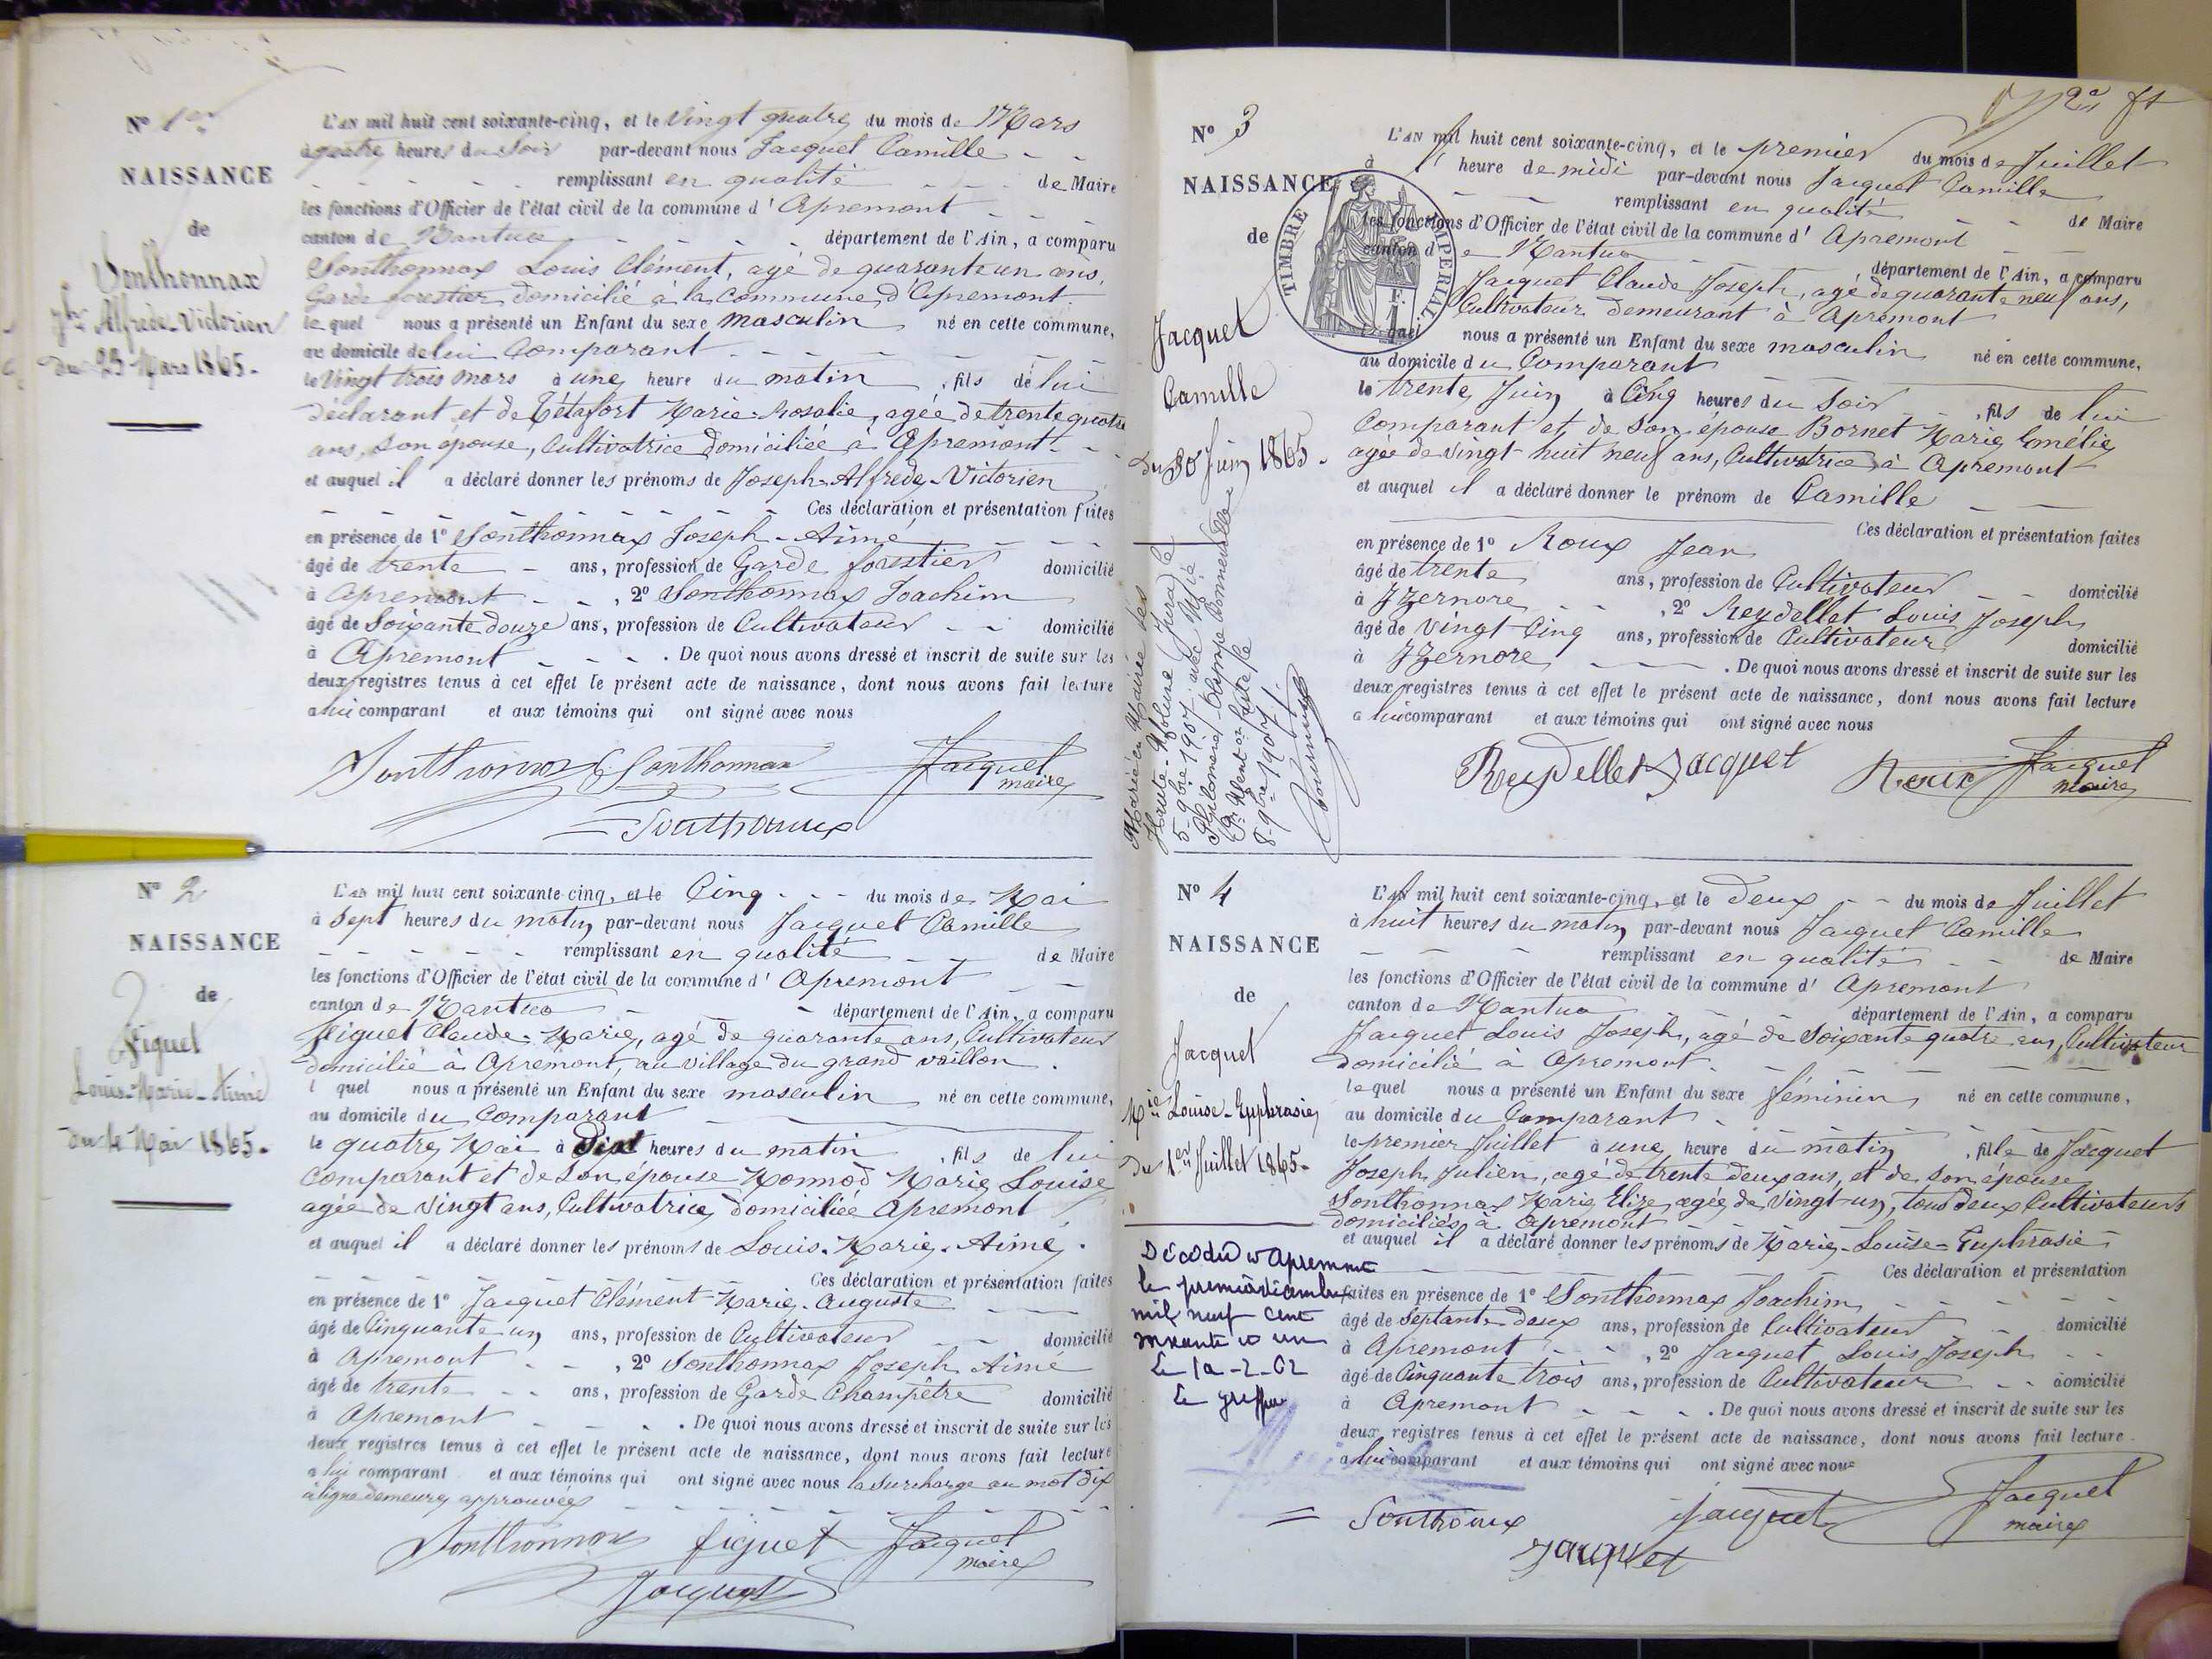 N° 1er
NAISSANCE
de
Sonthonnax
Jph Alfrede-Victorien
du 23 Mars 1865.
L'AN mil huit cent soixante-cinq, et le Vingt quatre du mois de Mars
à quatre heures du Soir par-devant nous Jacquet Camille
remplissant en qualité de Maire
les fonctions d'Officier de l'état civil de la commune d'Apremont
canton de Nantua département de l'Ain, a comparu
Sonthonnax Louis Clément, agé de quarante un ans,
Garde forestier domicilié à la Commune d'Apremont.
lequel nous a présenté un Enfant du sexe masculin né en cette commune,
au domicile de lui Comparant
le Vingt trois mars à une heure du matin, fils de lui
déclarant et de Tétafort Marie-Rosalie, agée de trente quatre
ans, son épouse, Cultivatrice domiciliée à Apremont
et auquel il a déclaré donner les prénoms de Joseph-Alfrede-Victorien
Ces déclaration et présentation faites
en présence de 1° Sonthonnax Joseph-Aimé
âgé de trente ans, profession de Garde forestier domicilié
à Apremont, 2° Sonthonnax Joachim
âgé de Soixante douze ans, profession de Cultivateur domicilié
à Apremont. De quoi nous avons dressé et inscrit de suite sur les
deux registres tenus à cet effet le présent acte de naissance, dont nous avons fait lecture
a lui comparant et aux témoins qui ont signé avec nous
Sonthonnax Sonthonnax Jacquet
maire
Sonthonnax
N° 2
NAISSANCE
de
Figuet
Louis-Marie-Aimé
du 4 Mai 1865.
L'AN mil huit cent soixante-cinq, et le Cinq du mois de Mai
à Sept heures du matin par-devant nous Jacquet Camille
remplissant en qualité de Maire
les fonctions d'Officier de l'état civil de la commune d'Apremont
canton de Nantua département de l'Ain, a comparu
Figuet Claude-Marie, agé de quarante ans, Cultivateur
domicilié à Apremont, au village du grand vaillon.
l quel nous a présenté un Enfant du sexe masculin né en cette commune,
au domicile du Comparant
le quatre Mai à Dix heures du matin, fils de lui
Comparant et de Son épouse Monnod Marie Louise
agée de Vingt ans, Cultivatrice domiciliée Apremont
et auquel il a déclaré donner les prénoms de Louis-Marie-Aimé.
Ces déclaration et présentation faites
en présence de 1° Jacquet Clément-Marie-Auguste
âgé de Cinquante un ans, profession de Cultivateur domicilié
à Apremont, 2° Sonthonnax Joseph Aimé
âgé de trente ans, profession de Garde Champêtre domicilié
à Apremont. De quoi nous avons dressé et inscrit de suite sur les
deux registres tenus à cet effet le présent acte de naissance, dont nous avons fait lecture
a lui comparant et aux témoins qui ont signé avec nous la surcharge au mot dix
à ligne demeure approuvée
Sonthonnax figuet Jacquet
maire
Jacquet
2e ft
N° 3
NAISSANCE
de
TIMBRE IMPERIAL
Jacquet
Camille
du 30 Juin 1865.
Marié en Mairie des
Haute-Molune (Jura) le
5-9bre 1907 avec Mie
8-9bre 1907.
L'AN mil huit cent soixante-cinq, et le premier du mois de Juillet
à l' heure de midi par-devant nous Jacquet Camille
remplissant en qualité de Maire
les fonctions d'Officier de l'état civil de la commune d'Apremont
canton de Nantua département de l'Ain, a comparu
Jacquet Claude Joseph, agé de quarante neuf ans,
Cultivateur demeurant à Apremont
le quel nous a présenté un Enfant du sexe masculin né en cette commune,
au domicile du Comparant
le trente Juin à Cinq heures du Soir, fils de lui
Comparant et de Son épouse Bornet Marie Emélie
agée de Vingt huit neuf ans, Cultivatrice à Apremont
et auquel il a déclaré donner le prénom de Camille
Ces déclaration et présentation faites
en présence de 1° Roux Jean
âgé de trente ans, profession de Cultivateur domicilié
à Izernore, 2° Reydellet Louis Joseph
âgé de vingt Cinq ans, profession de Cultivateur domicilié
à Izernore. De quoi nous avons dressé et inscrit de suite sur les
deux registres tenus à cet effet le présent acte de naissance, dont nous avons fait lecture
a lui comparant et aux témoins qui ont signé avec nous
Reydellet Jacquet Roux Jacquet
maire
N° 4
NAISSANCE
de
Jacquet
Mie Louise-Euphrasie
du 1er Juillet 1865.
Décédée à Apremont
le premier décembre
mil neuf cent
soixante et un
Le 12-2-62
Le greffier
L'AN mil huit cent soixante-cinq, et le Deux du mois de Juillet
à huit heures du matin par-devant nous Jacquet Camille
remplissant en qualité de Maire
les fonctions d'Officier de l'état civil de la commune d'Apremont
canton de Nantua département de l'Ain, a comparu
Jacquet Louis Joseph, agé de Soixante quatre ans, Cultivateur
domicilié à Apremont.
lequel nous a présenté un Enfant du sexe féminin né en cette commune,
au domicile du Comparant
le premier Juillet à une heure du matin, fille de Jacquet
Joseph Julien, agé de trente deux ans, et de son épouse
Sonthonnax Marie Elize agée de Vingt-un, tous deux Cultivateurs
domiciliés à Apremont
et auquel il a déclaré donner les prénoms de Marie-Louise-Euphrasie
Ces déclaration et présentation
faites en présence de 1° Sonthonnax Joachim
âgé de Septante Deux ans, profession de Cultivateur domicilié
à Apremont, 2° Jacquet Louis Joseph
âgé de Cinquante trois ans, profession de Cultivateur domicilié
à Apremont. De quoi nous avons dressé et inscrit de suite sur les
deux registres tenus à cet effet le présent acte de naissance, dont nous avons fait lecture
a lui comparant et aux témoins qui ont signé avec nous
Sonthonnax jacquet Jacquet
maire
Jacquet